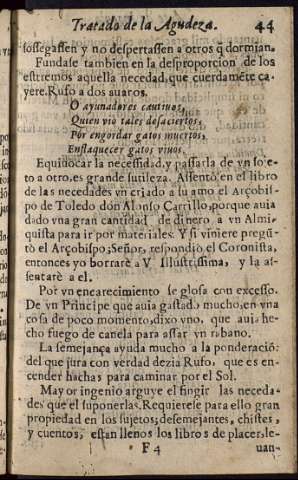 Tratado de la Agudeza. 44
sossegassen y no despertassen a otros q̃ dormian.
Fundase tambien en la desproporcion de los
estremos aquella necedad, que cuerdamẽte ca
yere. Rufo a dos auaros.
O ayunadores cautiuos,
Quien viò tales desaciertos,
Por engordar gatos muertos,
Enflaquecer gatos viuos.
Equiuocar la necessidad, y passarla de vn sojeto
a otro, es grande sutileza. Assentò en el libro
de las necedades vn criado a su amo el Arçobis
po de Toledo don Alonso Carrillo, porque auia
dado vna gran cantidad de dinero a vn Almi-
quista para ir por materiales. Y si viniere pregũ
tò el Arçobispo; Señor, respondiò el Coronista,
entonces yo borrarè a V. Illustrissima, y la as
sentarè a el.
Por vn encarecimiento se glosa con excesso.
De vn Principe que auia gastado mucho, en vna
cosa de poco momento, dixo vno, que auia he-
cho fuego de canela para assar vn rabano.
La semejança ayuda mucho a la ponderaciõ:
del que jura con verdad dezia Rufo, que es en-
cender hachas para caminar por el Sol.
Mayor ingenio arguye el fingir las neceda-
des que el suponerlas. Requierese para ello gran
propiedad en los sujetos, desemejantes, chistes,
y cuentos, estan llenos los libros de placer, le-
F 4 uan-